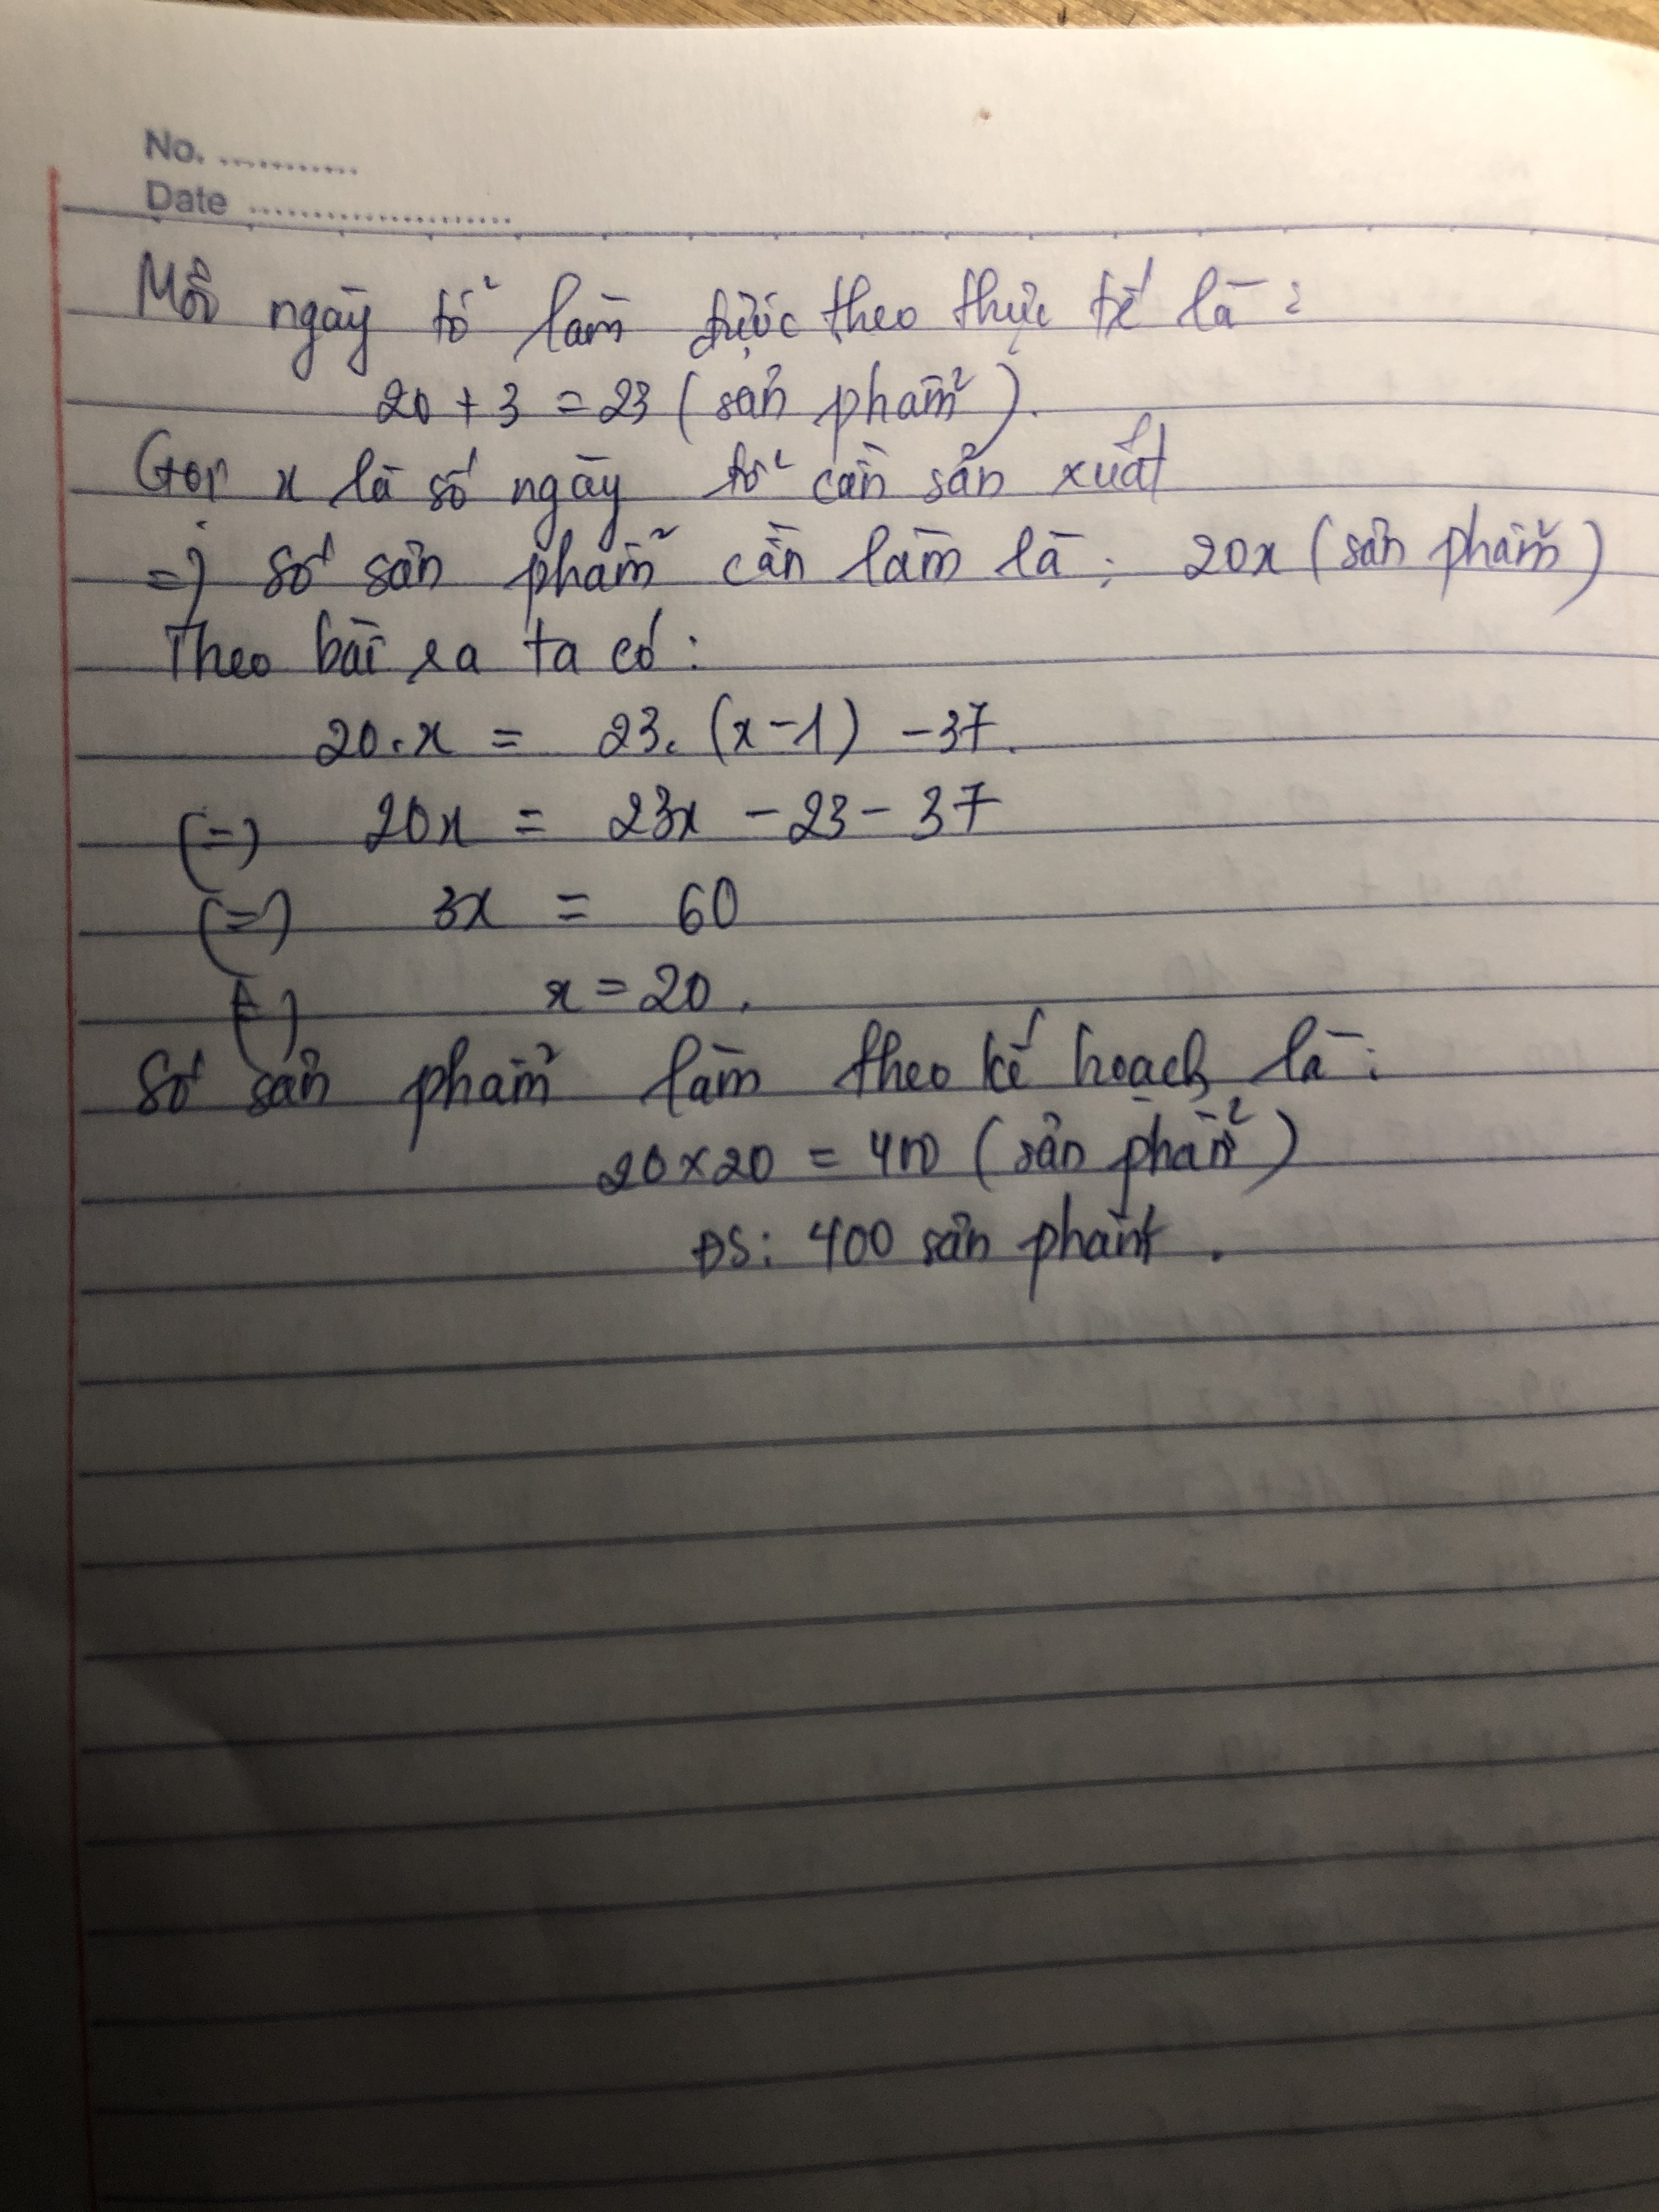 No. ............
Date ........................
Mỗi ngày tổ làm được theo thực tế là :
20 + 3 = 23 ( sản phẩm ).
Gọi x là số ngày tổ cần sản xuất
=> số sản phẩm cần làm là : 20x ( sản phẩm )
Theo bài ra ta có :
20.x = 23. (x-1) - 37.
(=) 20x = 23x - 23 - 37
(=) 3x = 60
(=) x = 20.
Số sản phẩm làm theo kế hoạch là :
20 x 20 = 400 ( sản phẩm )
ĐS : 400 sản phẩm .